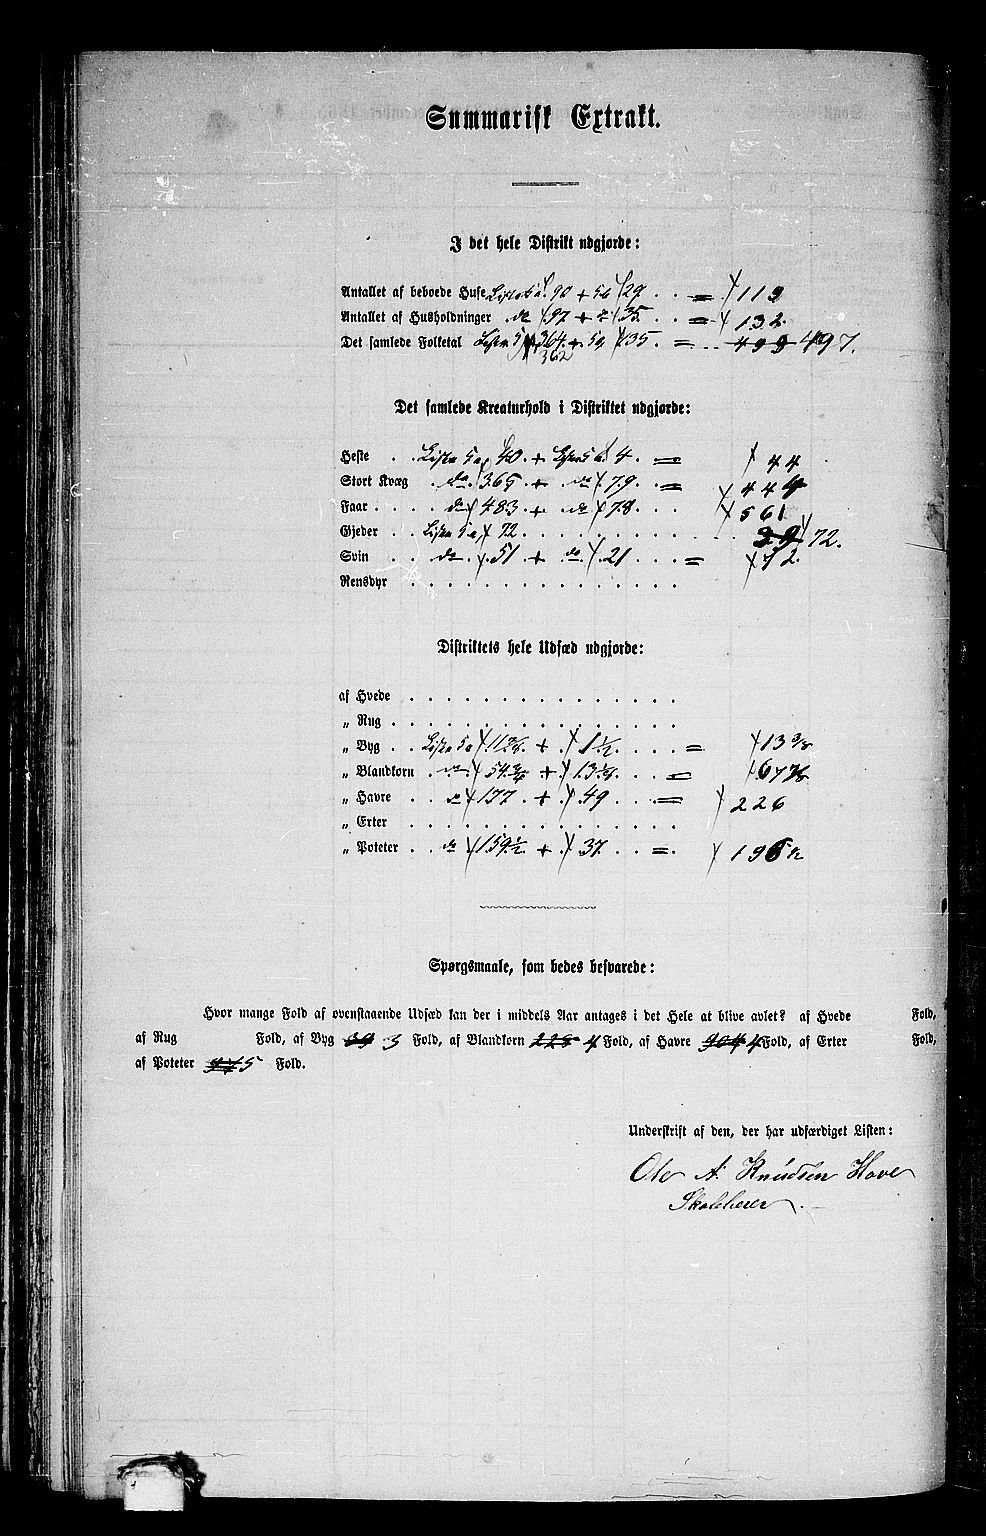 Summarisk Extrakt.
I det hele Distrikt udgjorde:
Antallet af beboede Huse Liste 5 a. 90 + 5 b 29 . . = 119
Antallet af Husholdninger . do 97 + do 35 . . = 132.
Det samlede Folketal Liste 5 a 364 + 5 b 135 . = . . 499 497.
362
Det samlede Kreaturhold i Distriktet udgjorde:
Heste . . Liste 5 a 40 + Liste 5 b 4 . = 44
Stort Kvæg . do . 365 + do 79 . = 444
Faar . . . . do 483 . + do 78 . . . 561
Gjeder . . Liste 5 a 72 . . . . . . . . . . . . 72.
Svin . . do . 51 + do . 21 . . . = 72.
Rensdyr . . . . . . . . . . . . .
Distriktets hele Udsæd udgjorde:
af Hvede . . . . . . . . . . . . .
„ Rug . . . . . . . . . . . . . .
„ Byg . . Liste 5 a 11 7/8 . + . 1 1/2 . . . = 13 3/8
„ Blandkorn . do . 54 + 13 . . = 67 7/8
„ Havre . . do 177 . + . 49 . . . = 226
„ Erter . . . . . . . . . . . . .
„ Poteter . . do 159 1/2 . + . 37 . . . = . 196 1/2
Spørgsmaale, som bedes besvarede:
Hvor mange Fold af ovenstaaende Udsæd kan der i middels Aar antages i det Hele at blive avlet? af Hvede Fold,
af Rug Fold, af Byg 39 3 Fold, af Blandkorn 228 4 Fold, af Havre 904 4 Fold, af Erter Fold,
af Poteter 5 Fold.
Underskrift af den, der har udfærdiget Listen:
Ole A. Knudsen Hove
Skolelærer.